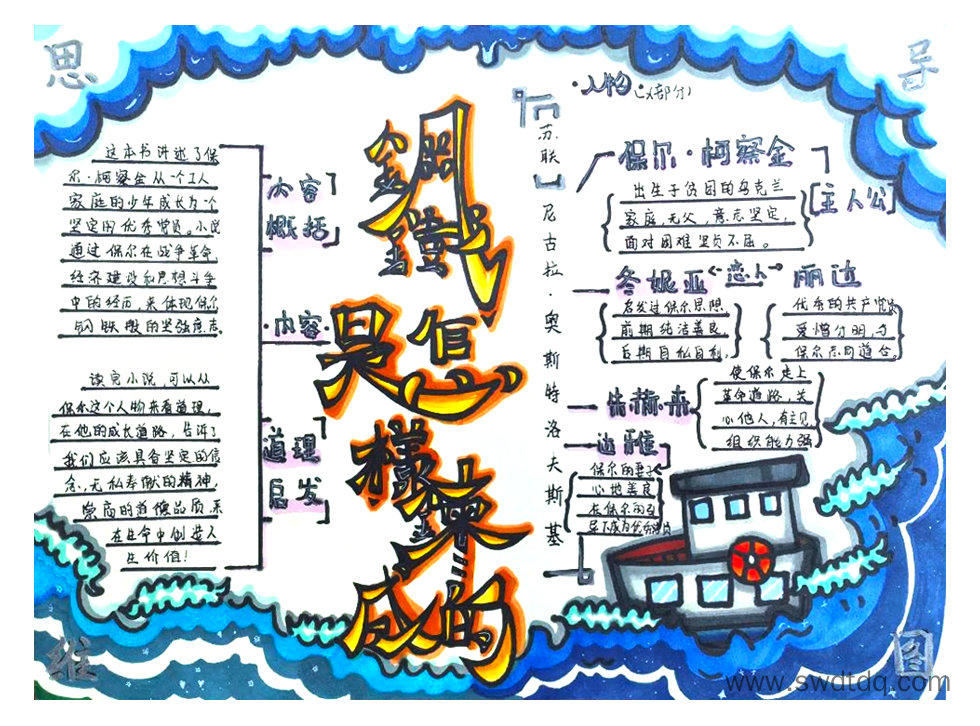 思
导
维
图
鋼鐵是怎樣煉成的
这本书讲述了保
尔·柯察金从一个工人
家庭的少年成长为一个
坚定的优秀党员。小说
通过保尔在战争革命
经济建设和思想斗争
中的经历,来体现保尔
钢铁般的坚强意志
内容
概括
·内容·
读完小说,可以从
保尔这个人物来看道理,
在他的成长道路,告诉了
我们应该具备坚定的信
念,无私奉献的精神,
崇高的道德品质,系
在生命中创造人
生价值!
道理
启发
苏联
尼古拉·奥斯特洛夫斯基
·人物(部分)
保尔·柯察金
[主人公]
出生于贫困的乌克兰
家庭,无父,意志坚定,
面对困难坚贞不屈。
冬妮亚
恋人
丽达
名发过保尔思想
前期纯洁善良,
后期自私自利,
优秀的共产党员
爱憎分明,与
保尔志同道合,
朱赫来
使保尔走上
革命道路,关
心他人,有主见
组织能力强
达雅
保尔的妻子
心地善良
在保尔的引
导下成为优秀党员
www.swdtdq.com